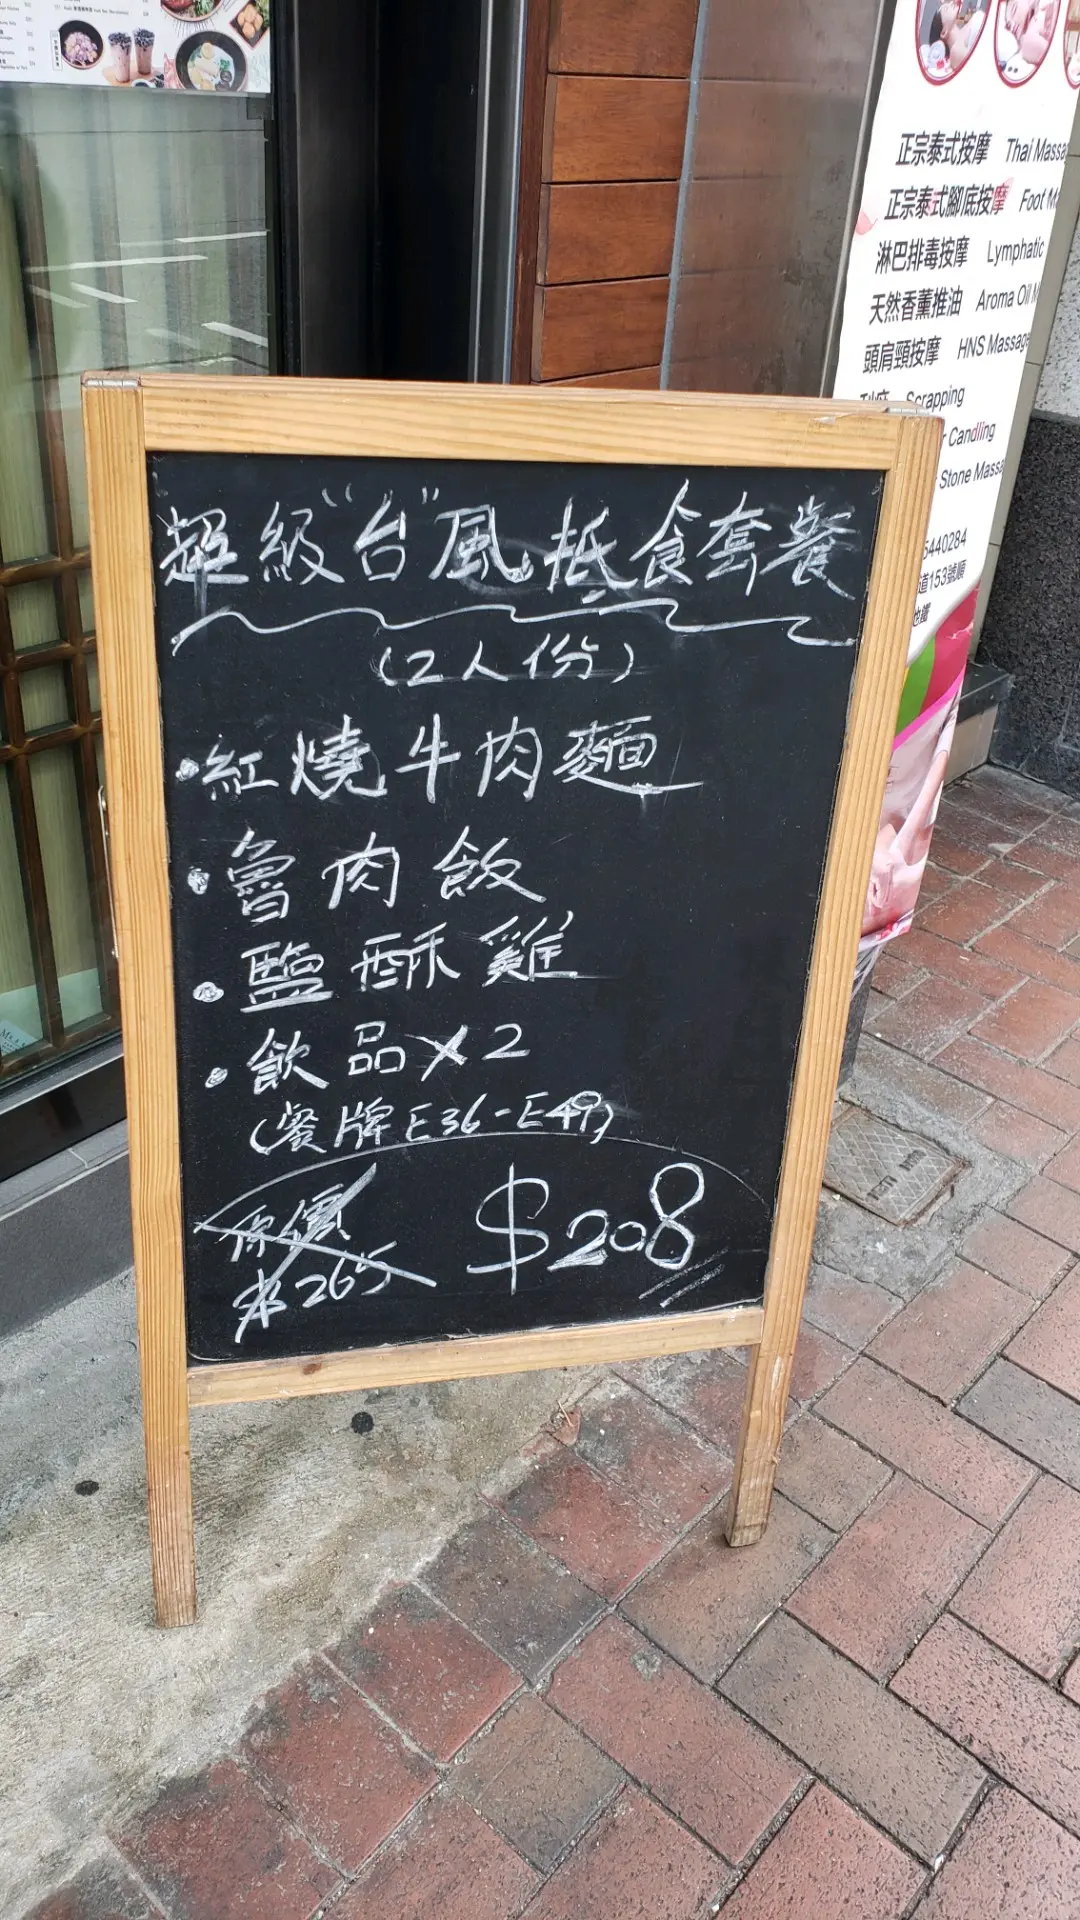 超級"台"風抵食套餐
(2人份)
·紅燒牛肉麵
·魯肉飯
·鹽酥雞
·飲品X2
(餐牌E36-E49)
原價
$265
$208
正宗泰式按摩 Thai Massa
正宗泰式腳底按摩 Foot M
淋巴排毒按摩 Lymphatic
天然香薰推油 Aroma Oil M
頭肩頸按摩 HNS Massage
Scrapping
r Candling
Stone Massa
5440284
道153號順